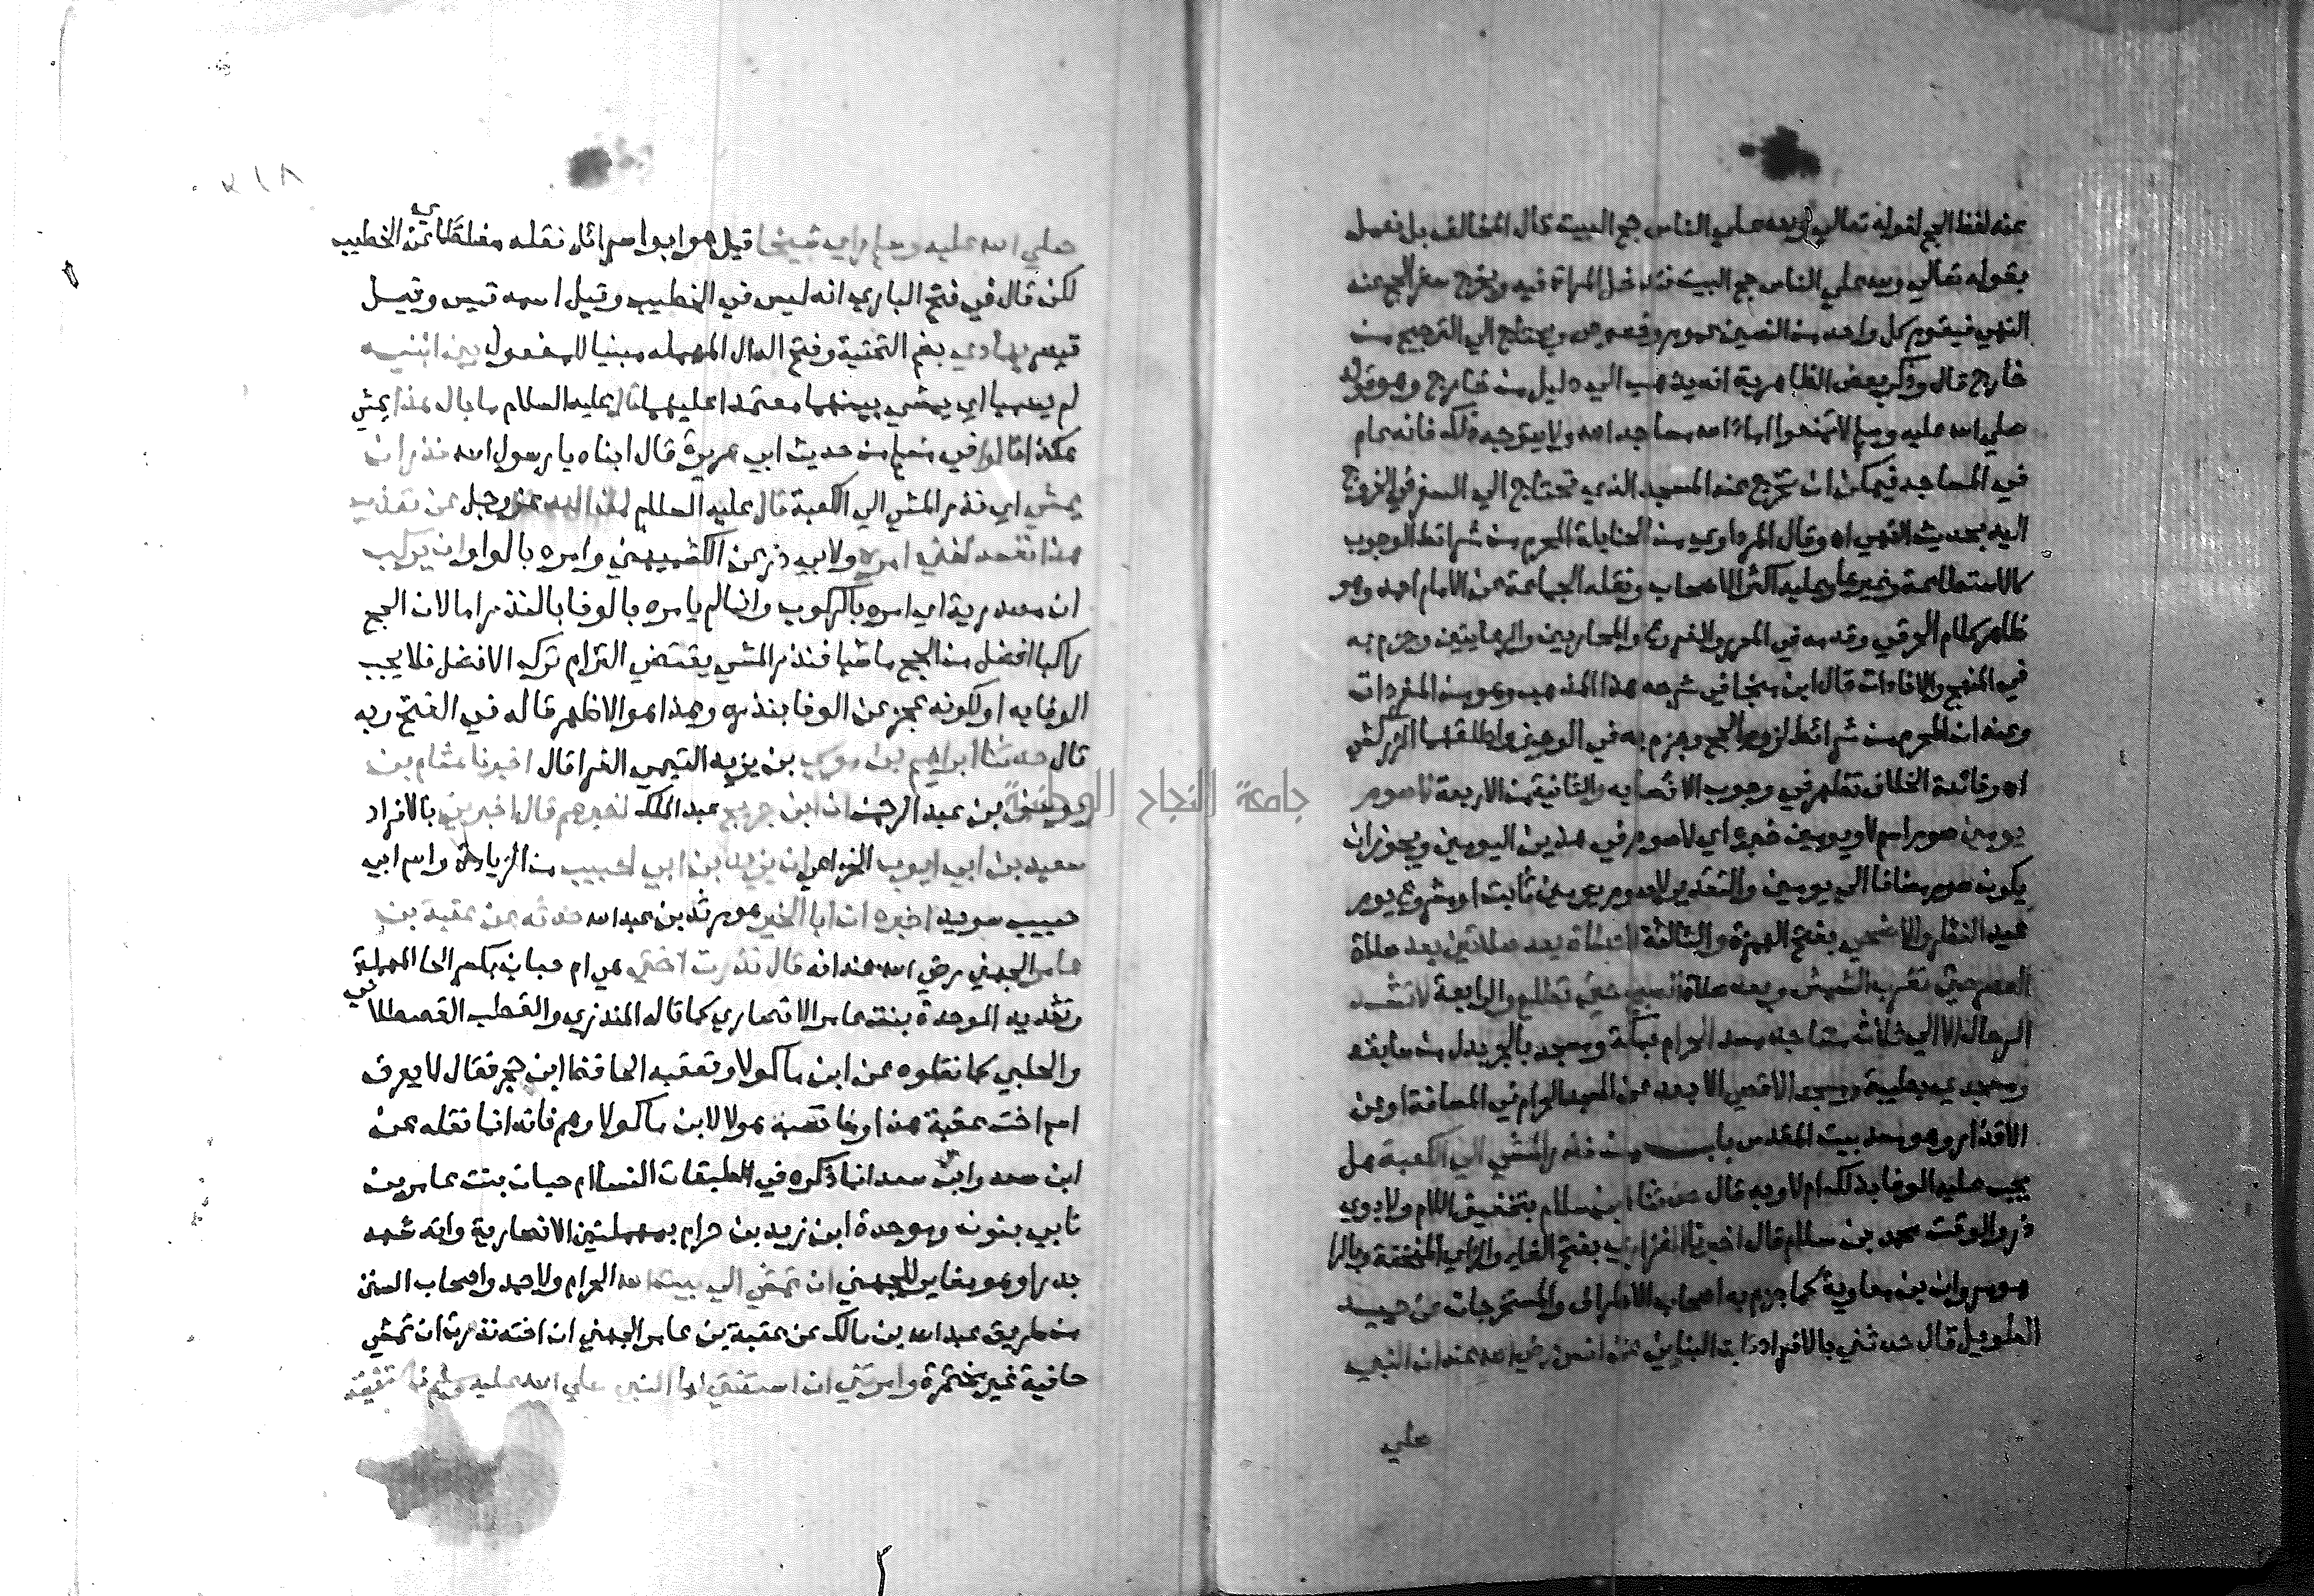 عنه لفظ الحج لقوله تعالي ولله علي الناس حج البيت قال المخالف بل نعمل
بقوله تعالي ولله علي الناس حج البيت فتدخل المراة فيه ويخرج سفر الحج عنه
النهي فيقوم كل واحد من النصين عموم وخصوص ويحتاج الي الترجيح من
خارج قال وذكر بعض الظاهرية انه يذهب الي دليل من خارج وهو قوله
صلي الله عليه وسلم لا تمنعوا اماء الله مساجد الله ولا يتوجه ذلك فانه عام
في المساجد فيمكن ان يخرج عنه المسجد الذي تحتاج الي السفر في الخروج
اليه بحديث النهي اه وقال المرداوي من الحنابلة المحرم من شرائط الوجوب
كالاستطاعة وغيرها وعليه اكثر الاصحاب ونقله الجماعة عن الامام احمد وهو
ظاهر كلام الخرقي وقدمه في المحرر والفروع والحاويين والرعايتين وجزم به
في المنهج والافادات قال ابن منجا في شرحه هذا المذهب وهو من المفردات
وعنه ان المحرم من شرائط لزوم الحج وجزم به في الوجيز واطلقهما الزركشي
اه وفائدة الخلاف تظهر في وجوب الايصا به والثانية من الاربعة لا صوم
يومين صوم اسم لا ويومين خبره اي لا صوم في هذين اليومين ويجوز ان
يكون صوم مضافا الي يومين والتقدير لا صوم يومين ثابت او مشروع يوم
عيد الفطر والاضحي بفتح الهمزة والثالثة لا صلاة بعد صلاتين بعد صلاة
العصر حتي تغرب الشمس وبعد صلاة الصبح حتي تطلع والرابعة لا تشد
الرحال الا الي ثلاث مساجد مسجد الحرام بمكة ومسجد بالجر بدل من سابقه
ومسجدي بطيبة ومسجد الاقصي الابعد عن المسجد الحرام في المسافة او عن
الاقذار وهو مسجد بيت المقدس باب من نذر المشي الي الكعبة هل
يجب عليه الوفا بذلك ام لا وبه قال حدثنا ابن سلام بتخفيف اللام ولابوي
ذر والوقت محمد بن سلام قال اخبرنا الفزاري بفتح الفاء والزاي المخففة وبالرا
هو مروان بن معاوية كما جزم به اصحاب الاطراف والمستخرجات عن حميد
الطويل قال حدثني بالافراد ثابت البناني عن انس رضي الله عنه ان النبي
علي
٢١٨
صلي الله عليه وسلم راي شيخا قيل هو ابو اسرائيل نقله مغلطاي عن الخطيب
لكن قال في فتح الباري انه ليس في الخطيب وقيل اسمه قيس وقيل
قيصر يهادي بضم التحتية وفتح الدال المهملة مبنيا للمفعول بين ابنيه
لم يسميا اي يمشي بينهما معتمدا عليهما قال عليه السلام ما بال هذا يمشي
هكذا قالوا في مسلم من حديث ابي هريرة قال ابناه يا رسول الله نذر ان
يمشي اي نذر المشي الي الكعبة قال عليه السلام ان الله عز وجل عن تعذيب
هذا نفسه لغني امره ولابي ذر عن الكشميهني وامره بالواو ان يركب
ان مصدرية اي امره بالركوب وانما لم يامره بالوفا بالنذر اما لان الحج
راكبا افضل من الحج ماشيا فنذر المشي يقتضي التزام ترك الافضل فلا يجب
الوفا به او لكونه عجز عن الوفا بنذره وهذا هو الاظهر قاله في الفتح وبه
قال حدثنا ابراهيم بن موسي بن يزيد التيمي الفرا قال اخبرنا هشام بن
يوسف بن عبد الرحمن ان ابن جريج عبد الملك اخبرهم قال اخبرني بالافراد
سعيد بن ابي ايوب الخزاعي ان يزيد بن ابي حبيب من الزيادة واسم ابي
حبيب سويد اخبره ان ابا الخير هو مرثد بن عبد الله حدثه عن عقبة بن
عامر الجهني رضي الله عنه انه قال نذرت اختي هي ام حبان بكسر الحا المهملة
وتشديد الموحدة بنت عامر الانصاري كما قاله المنذري والقطب القسطلاني
والحلبي كما نقلوه عن ابن ماكولا وتعقبه الحافظ ابن حجر فقال لا يعرف
اسم اخت عقبة هذا وما نسبه هولا لابن ماكولا وهم فانه انما نقله عن
ابن سعد وابن سعد انما ذكره في طبقات النسا ام حبان بنت عامر بن
نابي بنون وموحدة ابن زيد بن حرام بمهملتين الانصارية وانه شهد
بدرا وهو مغاير للجهني ان تمشي الي بيت الله الحرام ولاحمد واصحاب السنن
من طريق عبد الله بن مالك عن عقبة بن عامر الجهني ان اخته نذرت ان تمشي
حافية غير مختمرة وامرتني ان استفتي لها النبي صلي الله عليه وسلم فاستفتيته
جامعة النجاح الوطنية